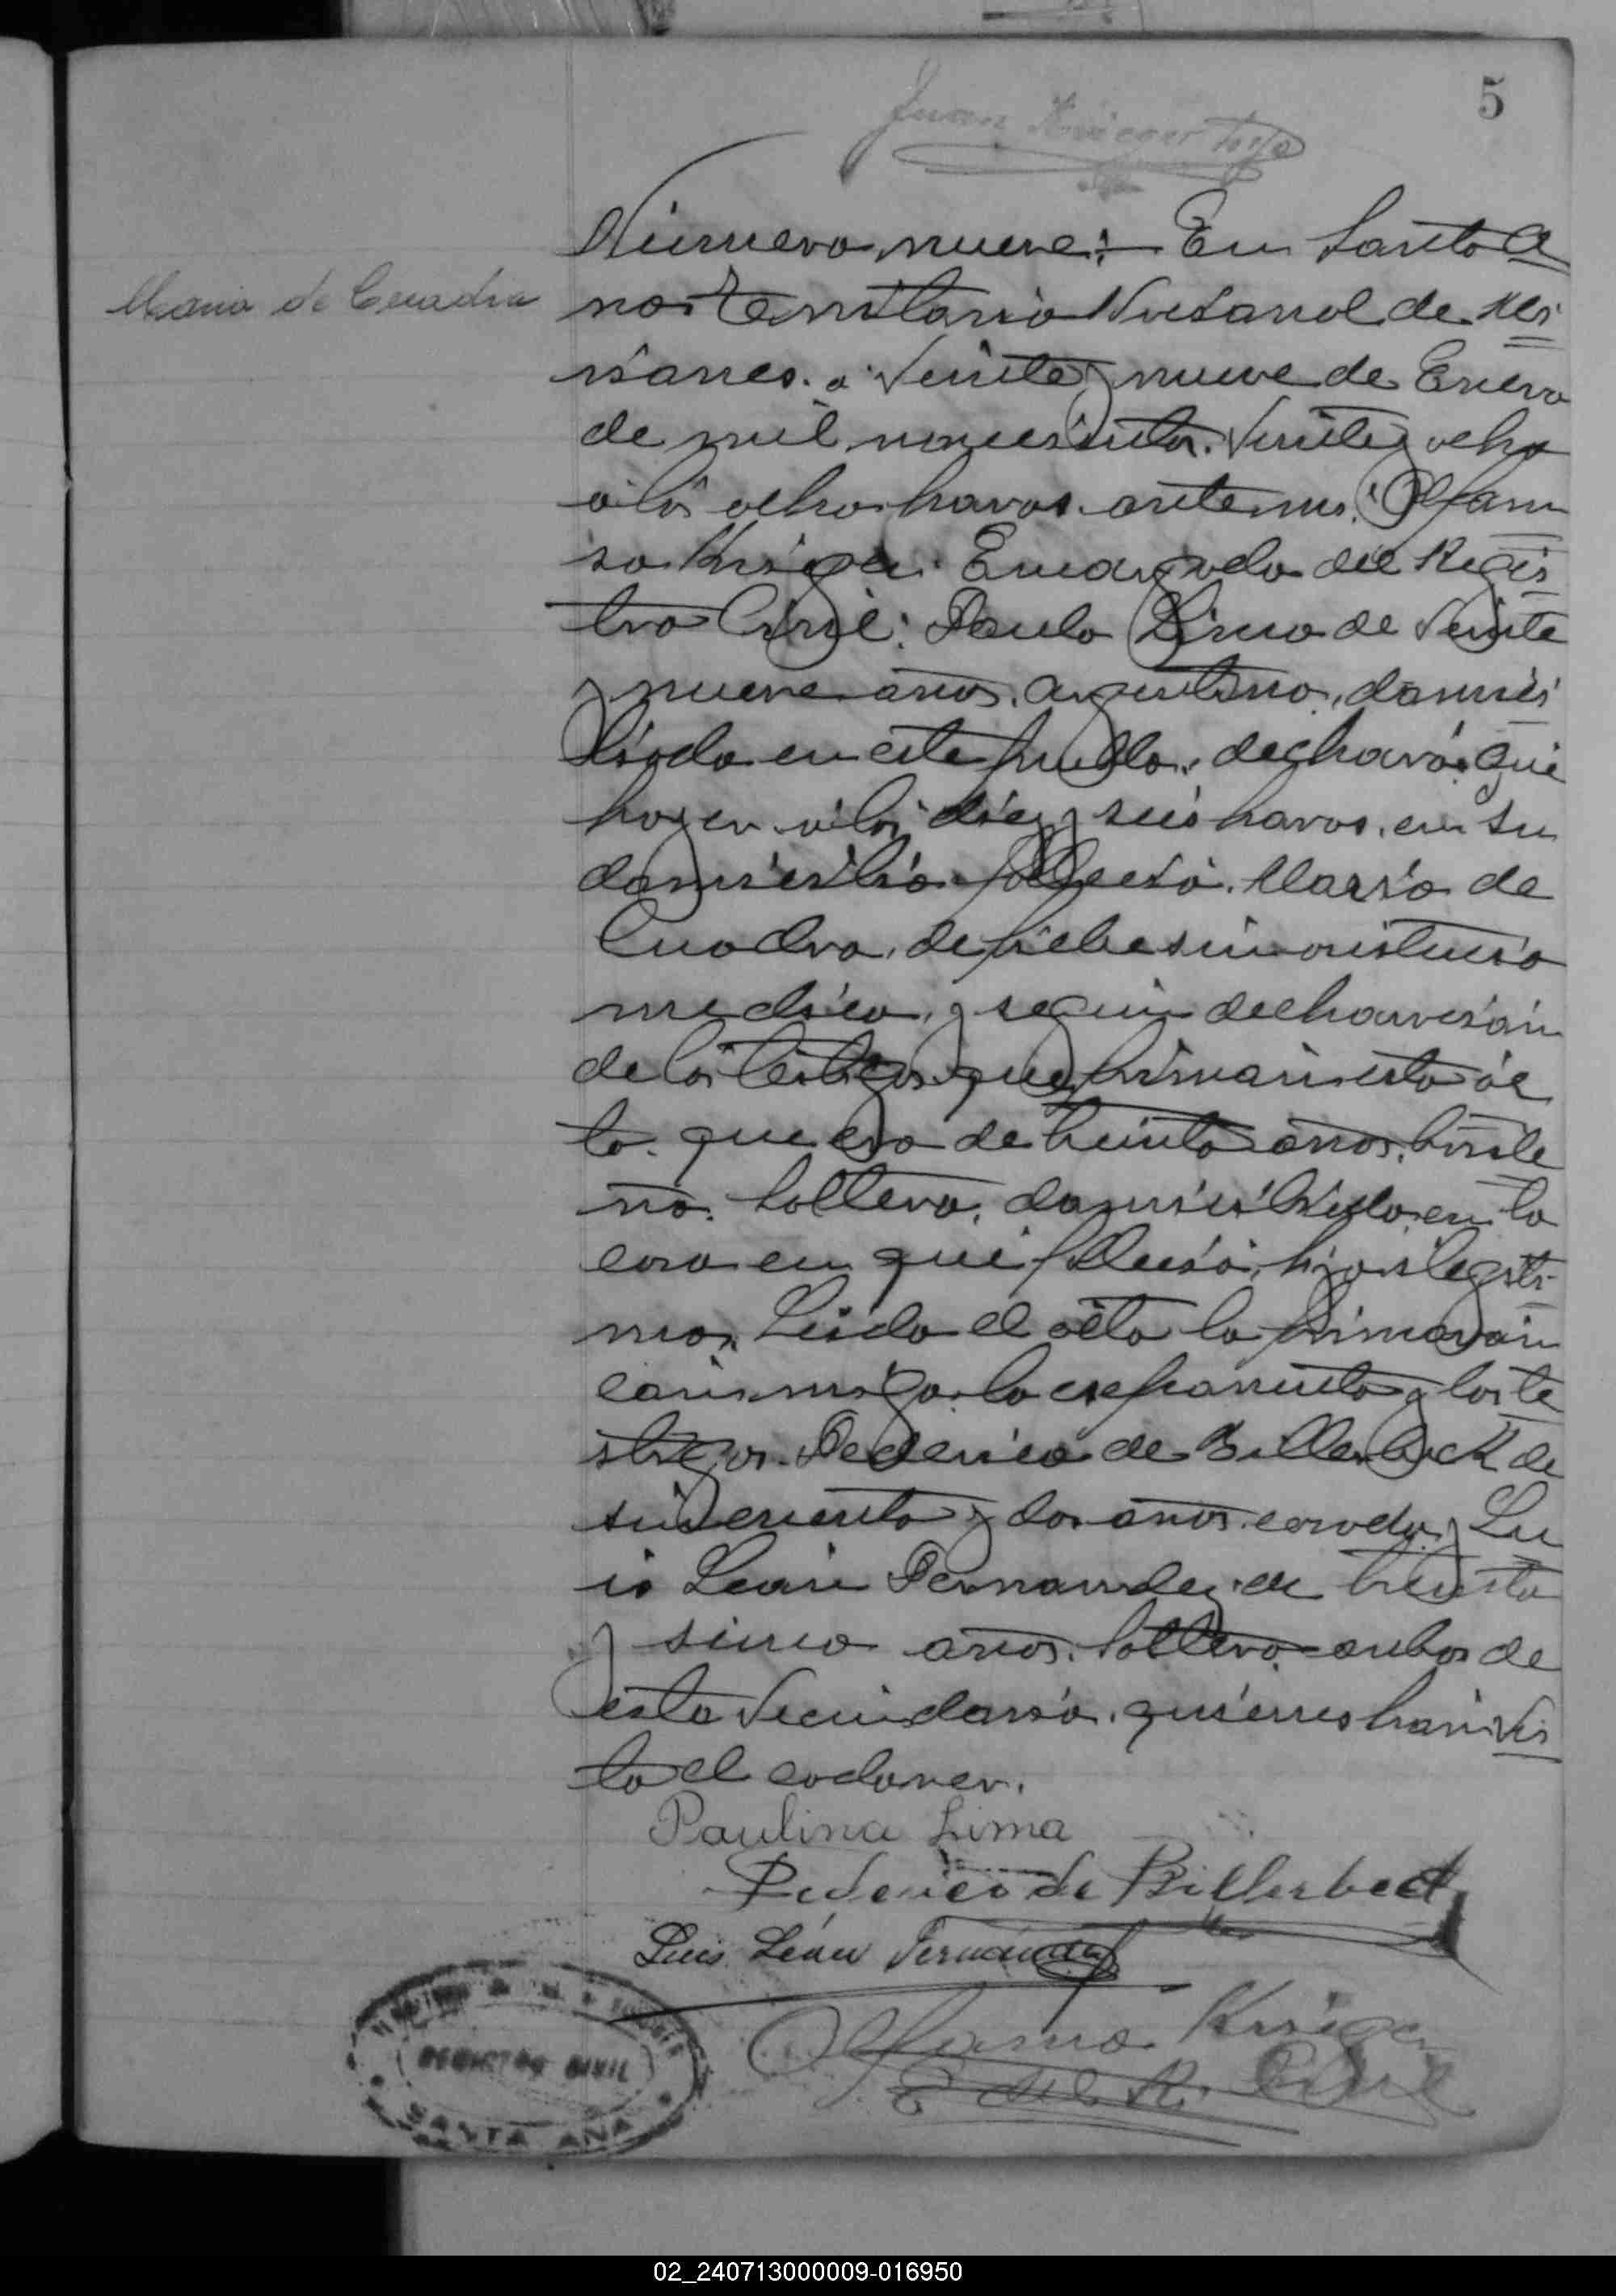 5
Juan Krieger hijo
Maria de Cuadra
Número nueve: En Santa A
na Territorio Nacional de Mi
siones. a Veinte y nueve de Enero
de mil novecientos Veinte y ocho
a las ocho horas. ante mi: Alfonso
so Krieger. Encargado del Regis
tro Civil: Paula Lima de Veinte
y nueve años. argentina, domici
liada en este pueblo, declaró: que
hoy a las diez y seis horas, en su
domicilio falleció. Maria de
Cuadra, de fiebre sin asistencia
medica, y segun declaración
de los testigos que firman esta ac
ta. que era de treinta años. brasile
na. soltera, domiciliada en la
casa en que falleció, hija ilegiti
ma. Leida el acta la firmaron
conmigo la exponente y los te
stigos. Federico de Billerbeck de
sincuenta y dos años. casado, y Lu
is León Fernandez de treinta
y sinco años. soltero. ambos de
esta Vecindario. quienes han vis
to el cadaver.
Paulina Lima
Federico de Billerbeck
Luis León Fernández
Alfonso Krieger
E. del R. Civil
REGISTRO CIVIL
SANTA ANA
02_240713000009-016950